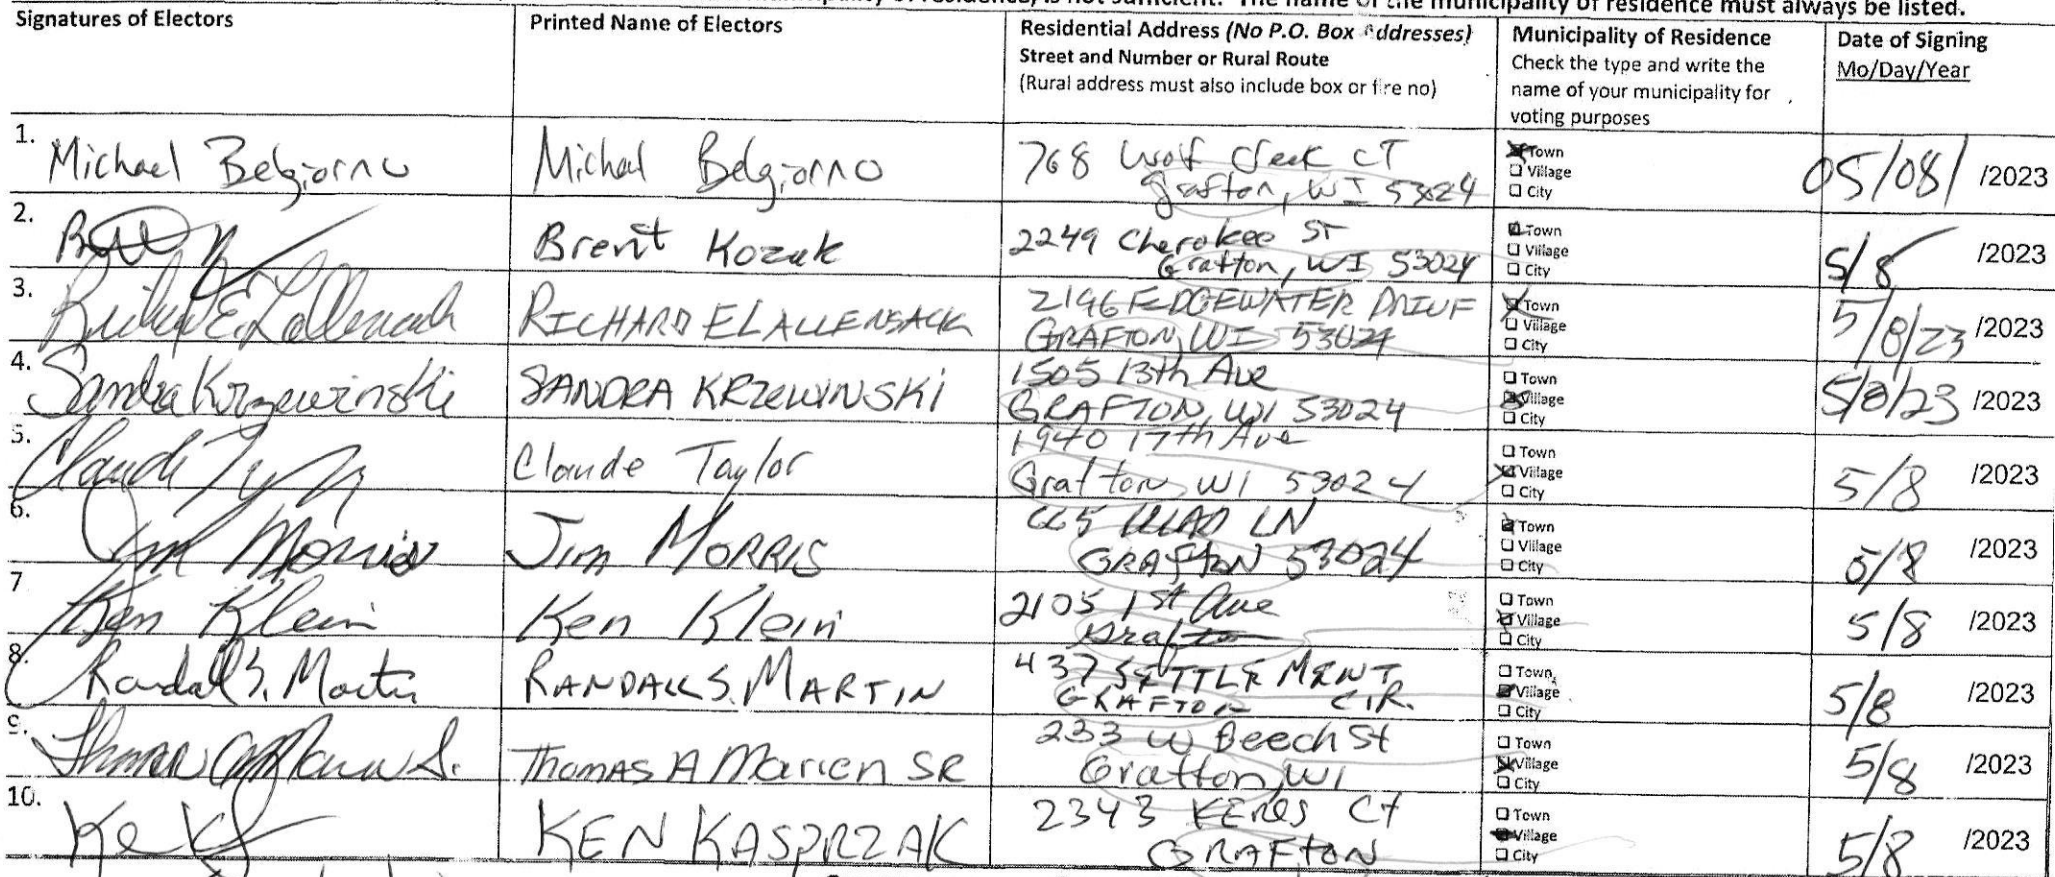 municipality of residence, is not sufficient. The name of the municipality of residence must always be listed.
Signatures of Electors
Printed Name of Electors
Residential Address (No P.O. Box Addresses)
Street and Number or Rural Route
(Rural address must also include box or fire no)
Municipality of Residence
Check the type and write the
name of your municipality for
voting purposes
Date of Signing
Mo/Day/Year
1.
Michael Belgiorno
Michael Belgiorno
768 Wolf Creek CT
Grafton, WI 53024
Town
Village
City
05/08/ /2023
2.
Brent Kozak
2249 Cherokee ST
Grafton, WI 53024
Town
Village
City
5/8 /2023
3.
RICHARD E LALLENSACK
2196 EDGEWATER DRIVE
GRAFTON, WI 53024
Town
Village
City
5/8/23 /2023
4.
Sandra Krzewinski
SANDRA KRZEWINSKI
1505 13th Ave
GRAFTON, WI 53024
Town
Village
City
5/8/23 /2023
5.
Claude Taylor
1940 17th Ave
Grafton, WI 53024
Town
Village
City
5/8 /2023
6.
Jim Morris
Jim MORRIS
LN
GRAFTON 53024
Town
Village
City
5/8 /2023
7
Ken Klein
Ken Klein
2105 1st Ave
Grafton
Town
Village
City
5/8 /2023
8.
Randal S. Martin
RANDALL S. MARTIN
437 SETTLEMENT
GRAFTON CIR.
Town
Village
City
5/8 /2023
9.
Thomas A Marien SR
233 W Beech St
Grafton, WI
Town
Village
City
5/8 /2023
10.
KEN KASPRZAK
2343 Ct
GRAFTON
Town
Village
City
5/8 /2023